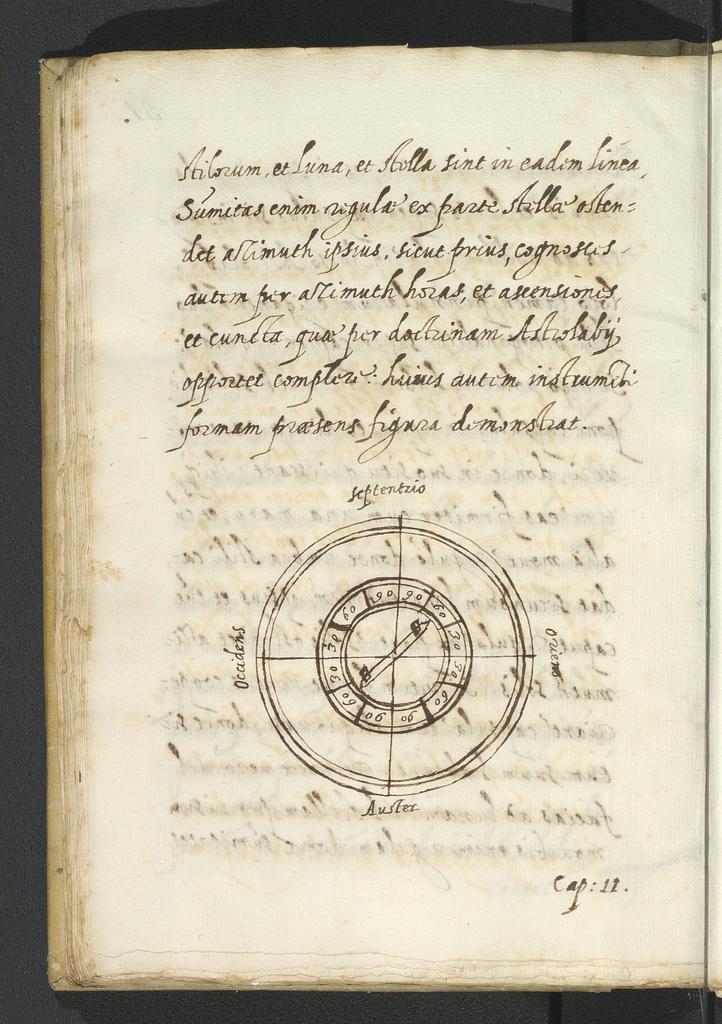 stilorum, et Luna, et stella sint in eadem linea,
Sumitas enim regulæ ex parte stellæ osten=
det azimuth ipsius, sicut prius, cognosces
autem per azimuth horas, et ascensiones,
et cuncta, quæ per doctrinam Astrolabij
opportet complere: huius autem instrumēti
formam præsens figura demonstrat.
septentrio
60 90 90 60
30 30
Occidens
Oriens
30 30
60 90 90 60
Auster
Cap: 11.